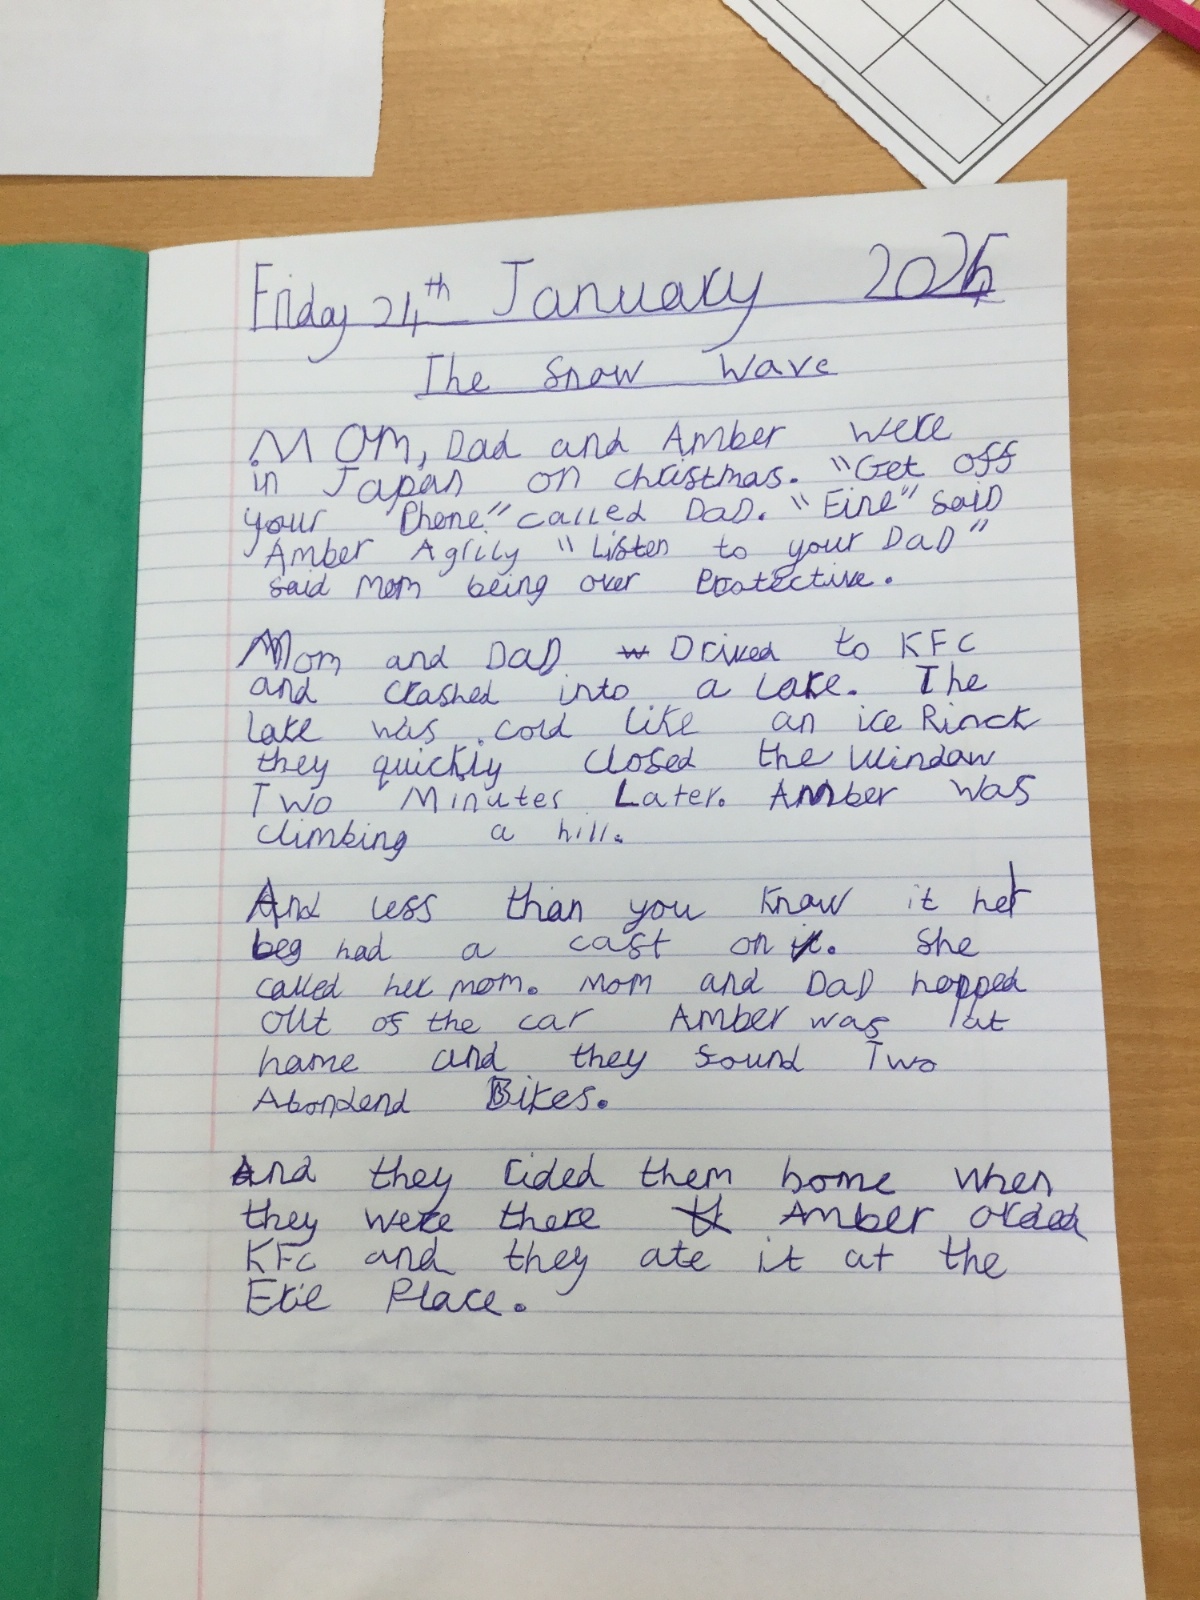 Friday 24th January 2025
The Snow Wave
MOM, Dad and Amber were
in Japan on christmas. "Get off
your Phone" called DaD. "Eine" said
Amber Agrily "Listen to your DaD"
said Mom being over Protective.
Mom and DaD Drived to KFC
and crashed into a lake. The
lake was cold like an ice Rinck
they quickly closed the Window
Two Minutes Later. Amber was
climbing a hill.
And less than you know it her
leg had a cast on it. She
called her mom. Mom and DaD hopped
out of the car Amber was at
home and they found Two
Abondend Bikes.
And they rided them home when
they were there Amber orded
KFC and they ate it at the
Place.